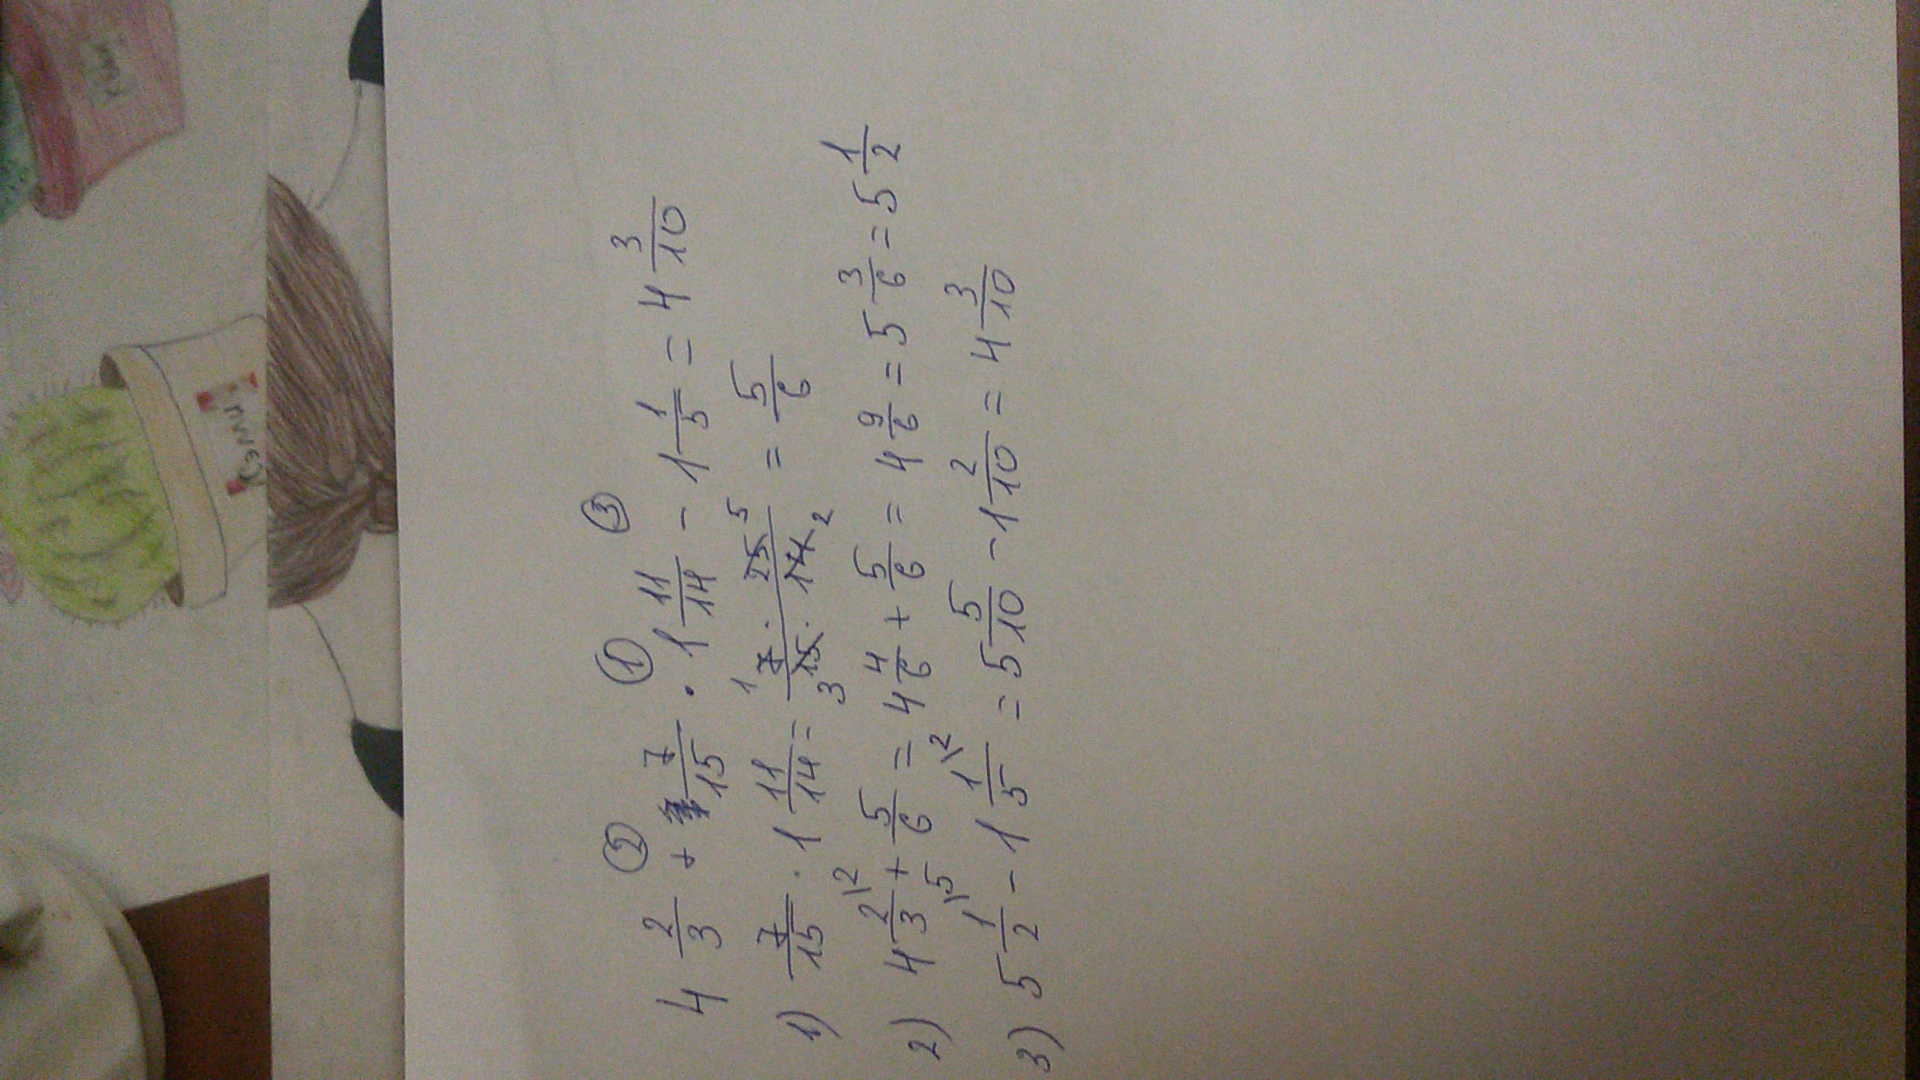 ② ① ③
4 2/3 + 7/15 · 1 11/14 - 1 1/5 = 4 3/10
1) 7/15 · 1 11/14 = 1 7 · 25 5 / 3 15 · 14 2 = 5/6
2) 4 2/3 \2 + 5/6 = 4 4/6 + 5/6 = 4 9/6 = 5 3/6 = 5 1/2
3) 5 1/2 \5 - 1 1/5 \2 = 5 5/10 - 1 2/10 = 4 3/10